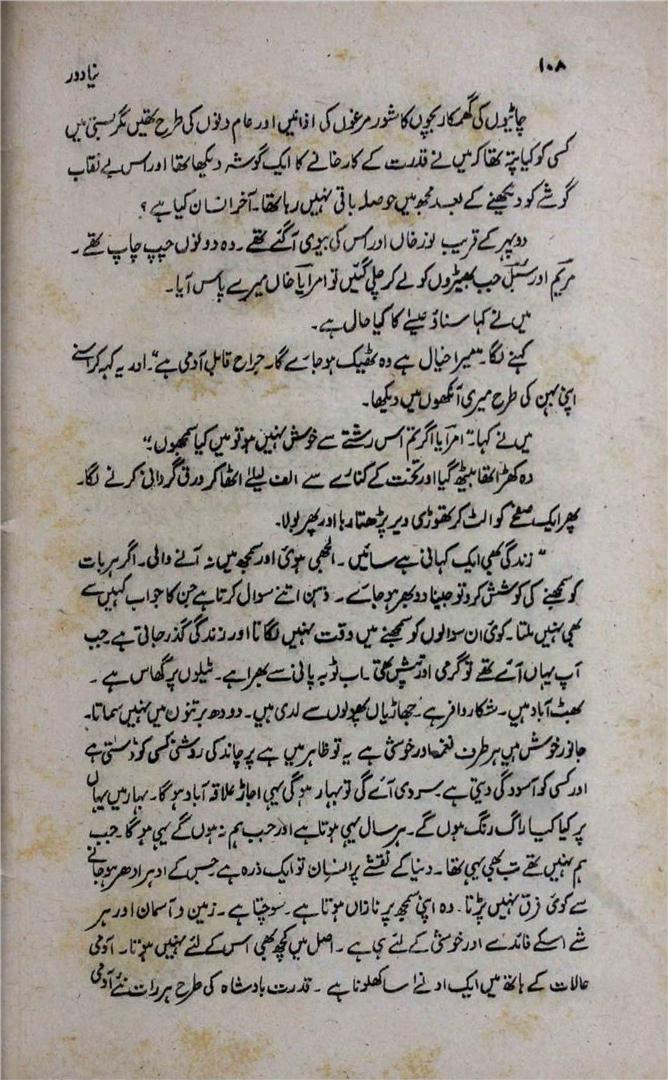 ۱۰۸
نیا دور
چاٹیوں کی گھمکار بچوں کا شور مرغوں کی اذانیں اور عام دنوں کی طرح تھیں مگر بستی میں
کسی کو کیا پتہ تھا کہ میں نے قدرت کے کارخانے کا ایک گوشہ دیکھا تھا اور اس بے نقاب
گوشے کو دیکھنے کے بعد مجھ میں حوصلہ باقی نہیں رہا تھا۔ آخر انسان کیا ہے ؟
دوپہر کے قریب نور خاں اور اس کی بیوی آ گئے تھے ۔ وہ دونوں چپ چاپ تھے ۔
مریم اور سنبل جب بھیڑوں کو لے کر چلی گئیں تو امرایا خاں میرے پاس آیا۔
میں نے کہا سناؤ عیسےٰ کا کیا حال ہے۔
کہنے لگا۔ "میرا خیال ہے وہ ٹھیک ہو جائے گا۔ جراح قابل آدمی ہے"۔ اور یہ کہہ کر اسنے
اپنی بہن کی طرح میری آنکھوں میں دیکھا۔
میں نے کہا۔ "امرایا اگر تم اس رشتے سے خوش نہیں ہو تو میں کیا سمجھوں۔"
وہ کھڑا تھا بیٹھ گیا اور تخت کے کنارے سے الف لیلےٰ اٹھا کر ورق گردانی کرنے لگا۔
پھر ایک صفحے کو الٹ کر تھوڑی دیر پڑھتا رہا اور پھر بولا۔
"زندگی بھی ایک کہانی ہے سائیں ۔ الجھی ہوئی اور سمجھ میں نہ آنے والی۔ اگر ہر بات
کو سمجھنے کی کوشش کرو تو جینا دوبھر ہو جائے ۔ ذہن اتنے سوال کرتا ہے جن کا جواب کہیں سے
بھی نہیں ملتا۔ کوئی ان سوالوں کو سمجھنے میں وقت نہیں لگاتا اور زندگی گذر جاتی ہے جب
آپ یہاں آئے تھے تو گرمی اور تپش تھی۔ اب ٹوبہ پانی سے بھرا ہے۔ ٹیلوں پر گھاس ہے ۔
بھٹ آباد ہیں۔ شکار وافر ہے۔ جھاڑیاں پھولوں سے لدی ہیں۔ دودھ برتنوں میں نہیں سماتا۔
جانور خوش ہیں ہر طرف نغمہ اور خوشی ہے یہ تو ظاہر میں ہے پر چاند کی روشنی کسی کو ڈستی ہے
اور کسی کو آسودگی دیتی ہے۔ سردی آئے گی تو بہار ہو گی یہی اجاڑ علاقہ آباد ہو گا۔ بہار میں یہاں
پر کیا کیا راگ رنگ ہوں گے۔ ہر سال یہی ہوتا ہے اور جب ہم نہ ہوں گے یہی ہو گا۔ جب
ہم نہیں تھے تب بھی یہی تھا۔ دنیا کے نقشے پر انسان تو ایک ذرہ ہے جس کے ادہر ادھر ہو جانے
سے کوئی فرق نہیں پڑتا۔ وہ اپنی سمجھ پر نازاں ہوتا ہے۔ سوچتا ہے۔ زمین و آسمان اور ہر
شے اسکے فائدے اور خوشی کے لئے ہی ہے ۔ اصل میں کچھ بھی اس کے لئے نہیں ہوتا۔ آدمی
حالات کے ہاتھ میں ایک ادنےٰ سا کھلونا ہے ۔ قدرت بادشاہ کی طرح ہر رات نئے آدمی